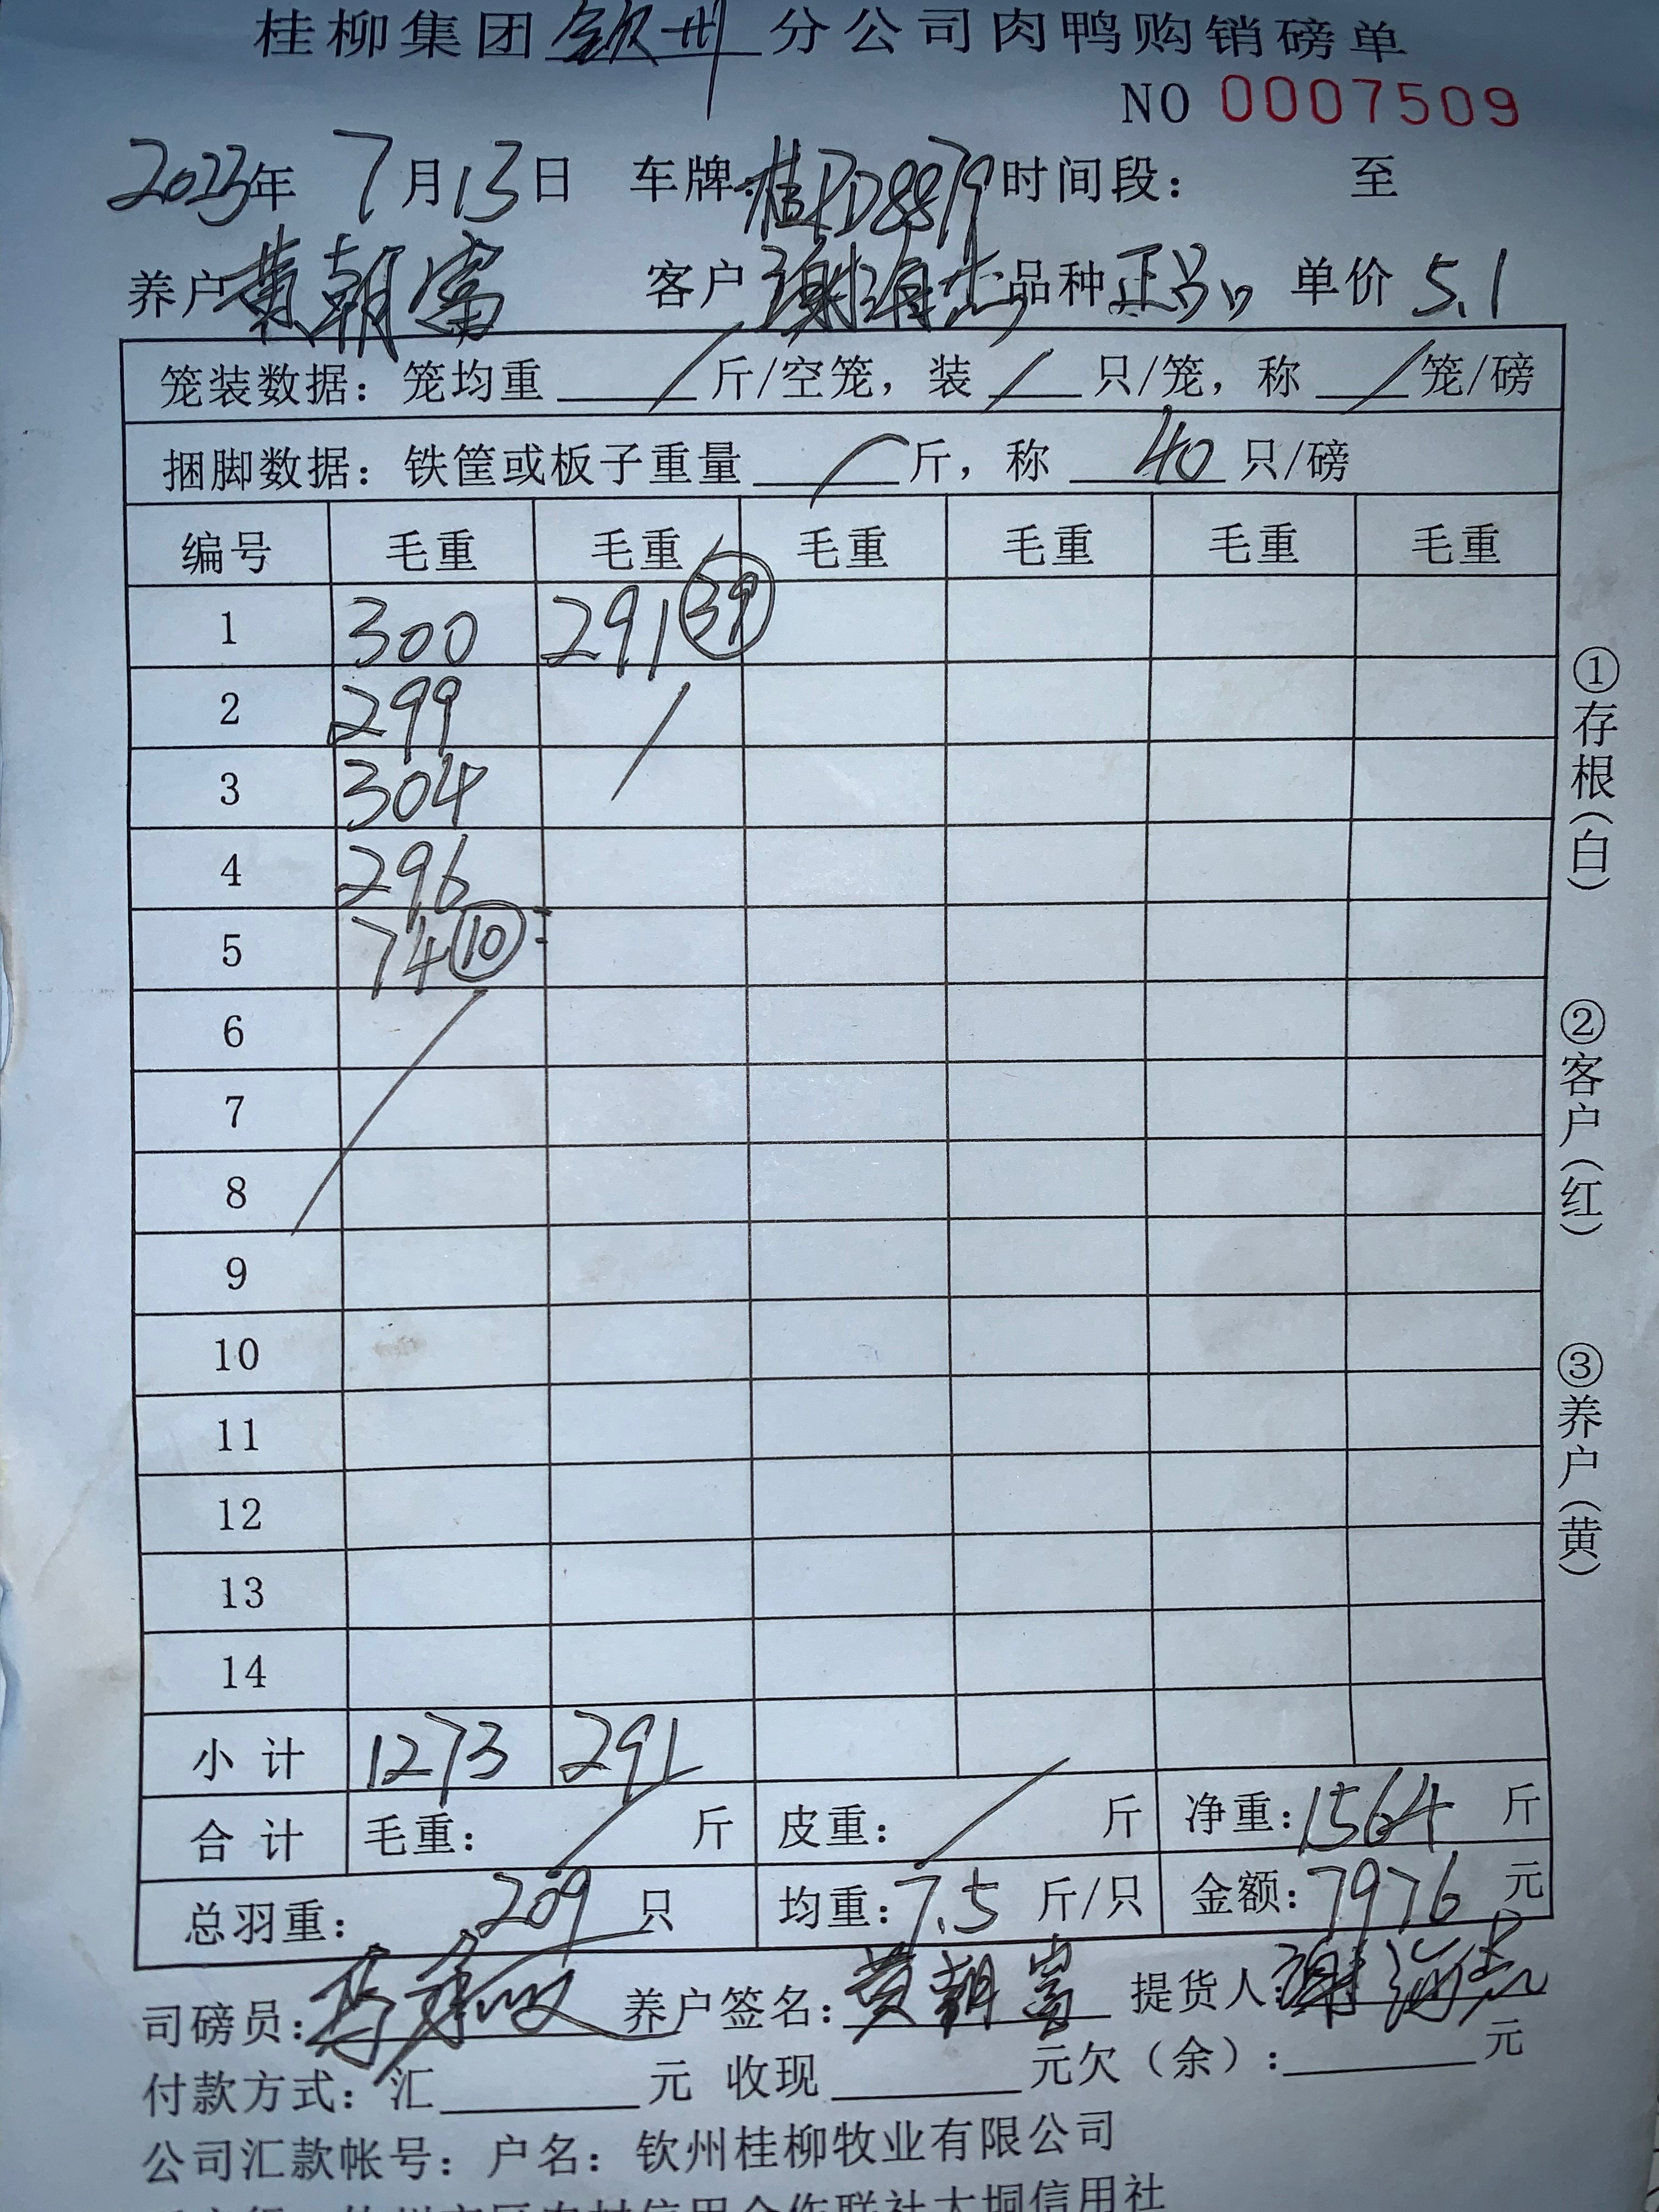 桂柳集团钦州分公司肉鸭购销磅单
NO 0007509
2023年 7月13日 车牌:桂PD8879 时间段: 至
养户 黄朝富 客户 谢海杰 品种 正品 单价 5.1
笼装数据: 笼均重 / 斤/空笼, 装 / 只/笼, 称 / 笼/磅
捆脚数据: 铁筐或板子重量 / 斤, 称 40 只/磅
编号 毛重 毛重 毛重 毛重 毛重 毛重
1 300 291 39
2 299
3 304
4 296
5 74 10
6
7
8
9
10
11
12
13
14
小计 1273 291
合计 毛重: / 斤 皮重: / 斤 净重: 1564 斤
总羽重: 209 只 均重: 7.5 斤/只 金额: 7976 元
司磅员: 养户签名: 黄朝富 提货人: 谢海杰
付款方式: 汇 元 收现 元欠(余): 元
公司汇款帐号: 户名: 钦州桂柳牧业有限公司
①存根(白)
②客户(红)
③养户(黄)